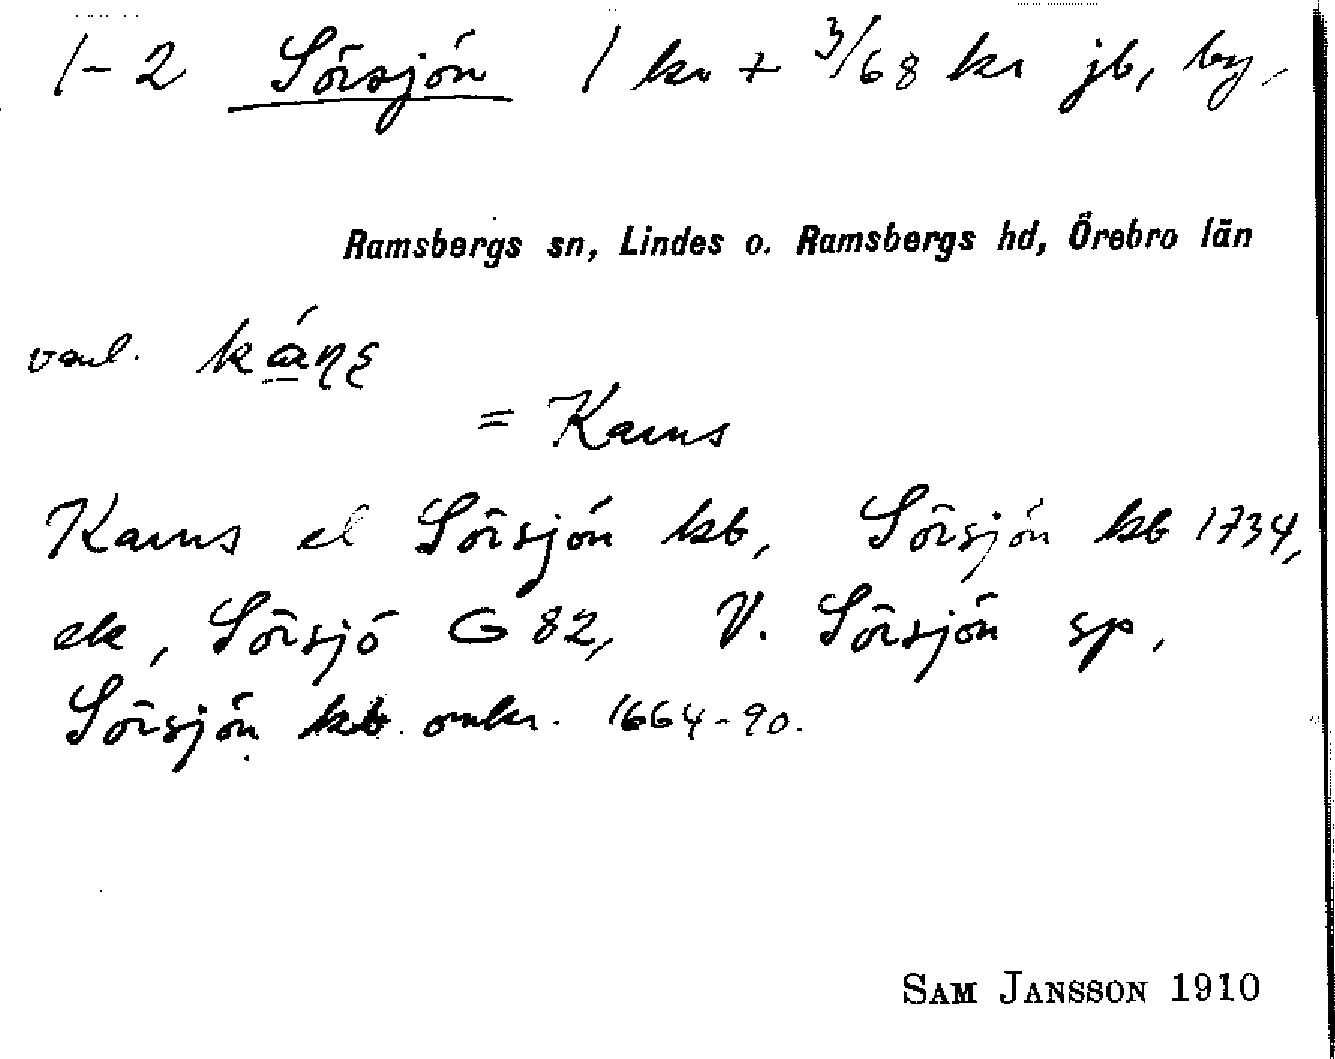 1-2 Sörsjön 1 kr + 3/68 kr jb, by,
Ramsbergs sn, Lindes o. Ramsbergs hd, Örebro län
vanl.
= Karns
Karns el Sörsjön kb, Sörsjön kb 1734,
ek, Sörsjö G 82, V. Sörsjön sp,
Sörsjön kb. omkr. 1664-90.
SAM JANSSON 1910